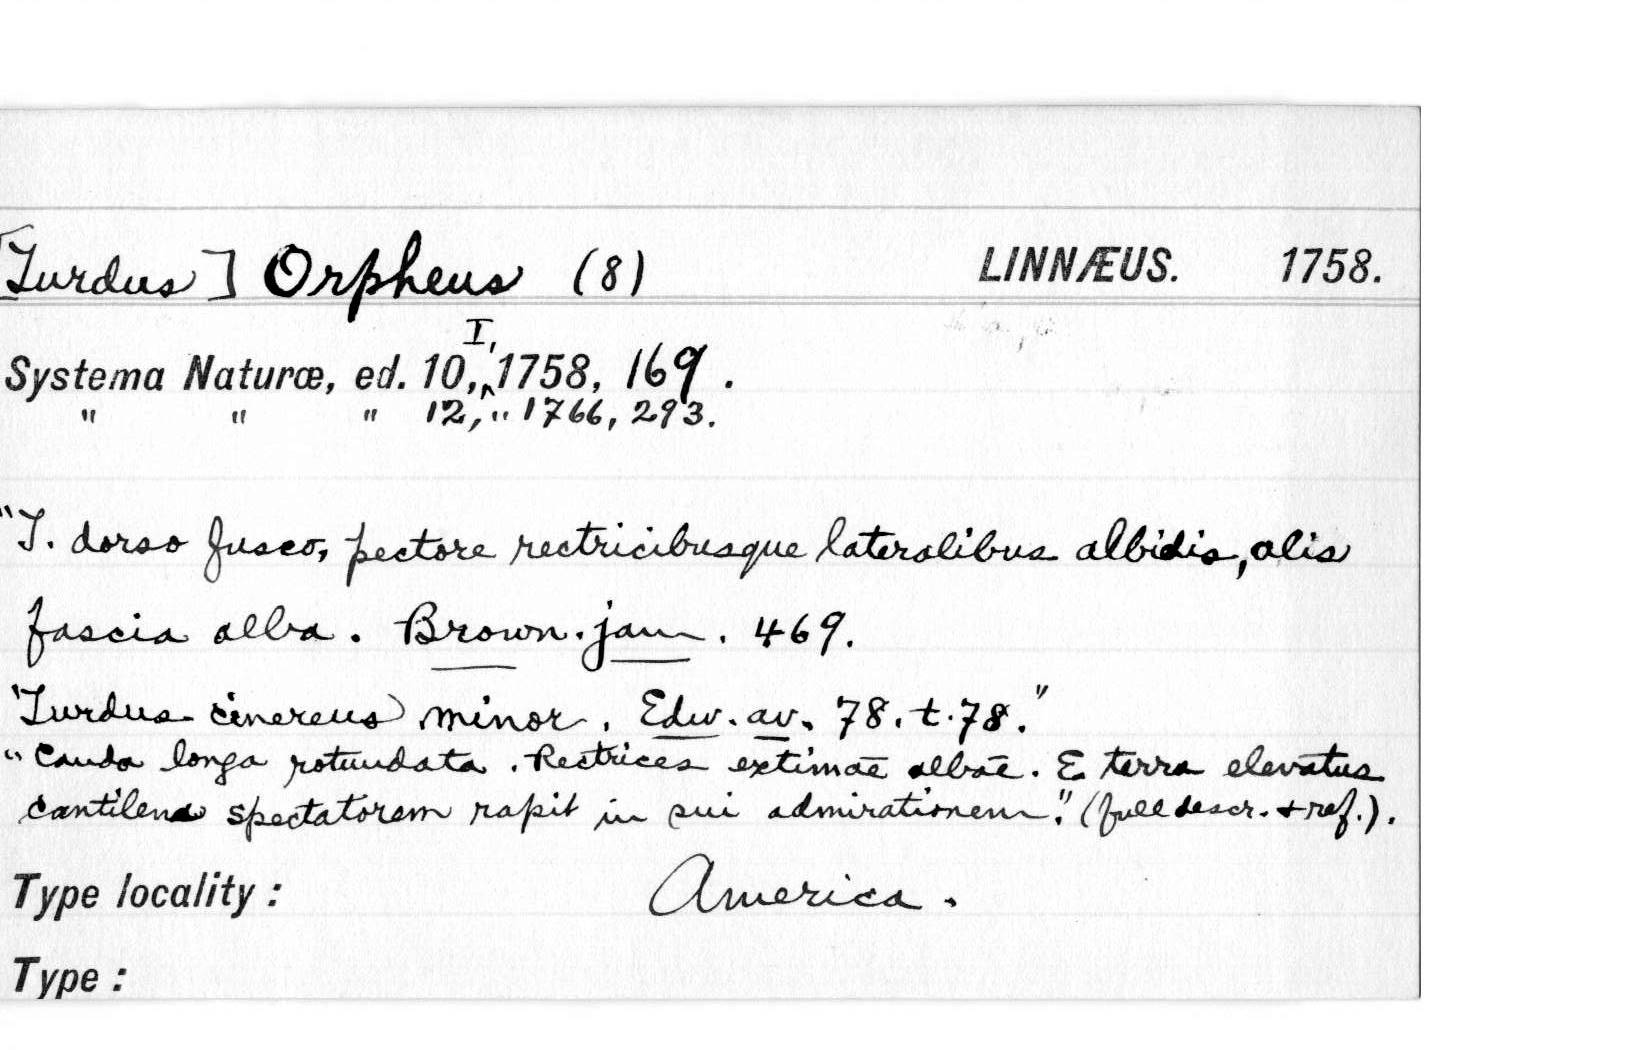 [Turdus] Orpheus (8) LINNÆUS. 1758.
Systema Naturæ, ed. 10, I, 1758, 169.
" " " 12, " 1766, 293.
"T. dorso fusco, pectore rectricibusque lateralibus albidis, alis
fascia alba. Brown. jam. 469.
"Turdus cinereus minor. Edw. av. 78. t. 78."
"Cauda longa rotundata. Rectrices extimae albae. E terra elevatus
cantilena spectatorem rapit in sui admirationem." (full descr. + ref.).
Type locality: America.
Type: